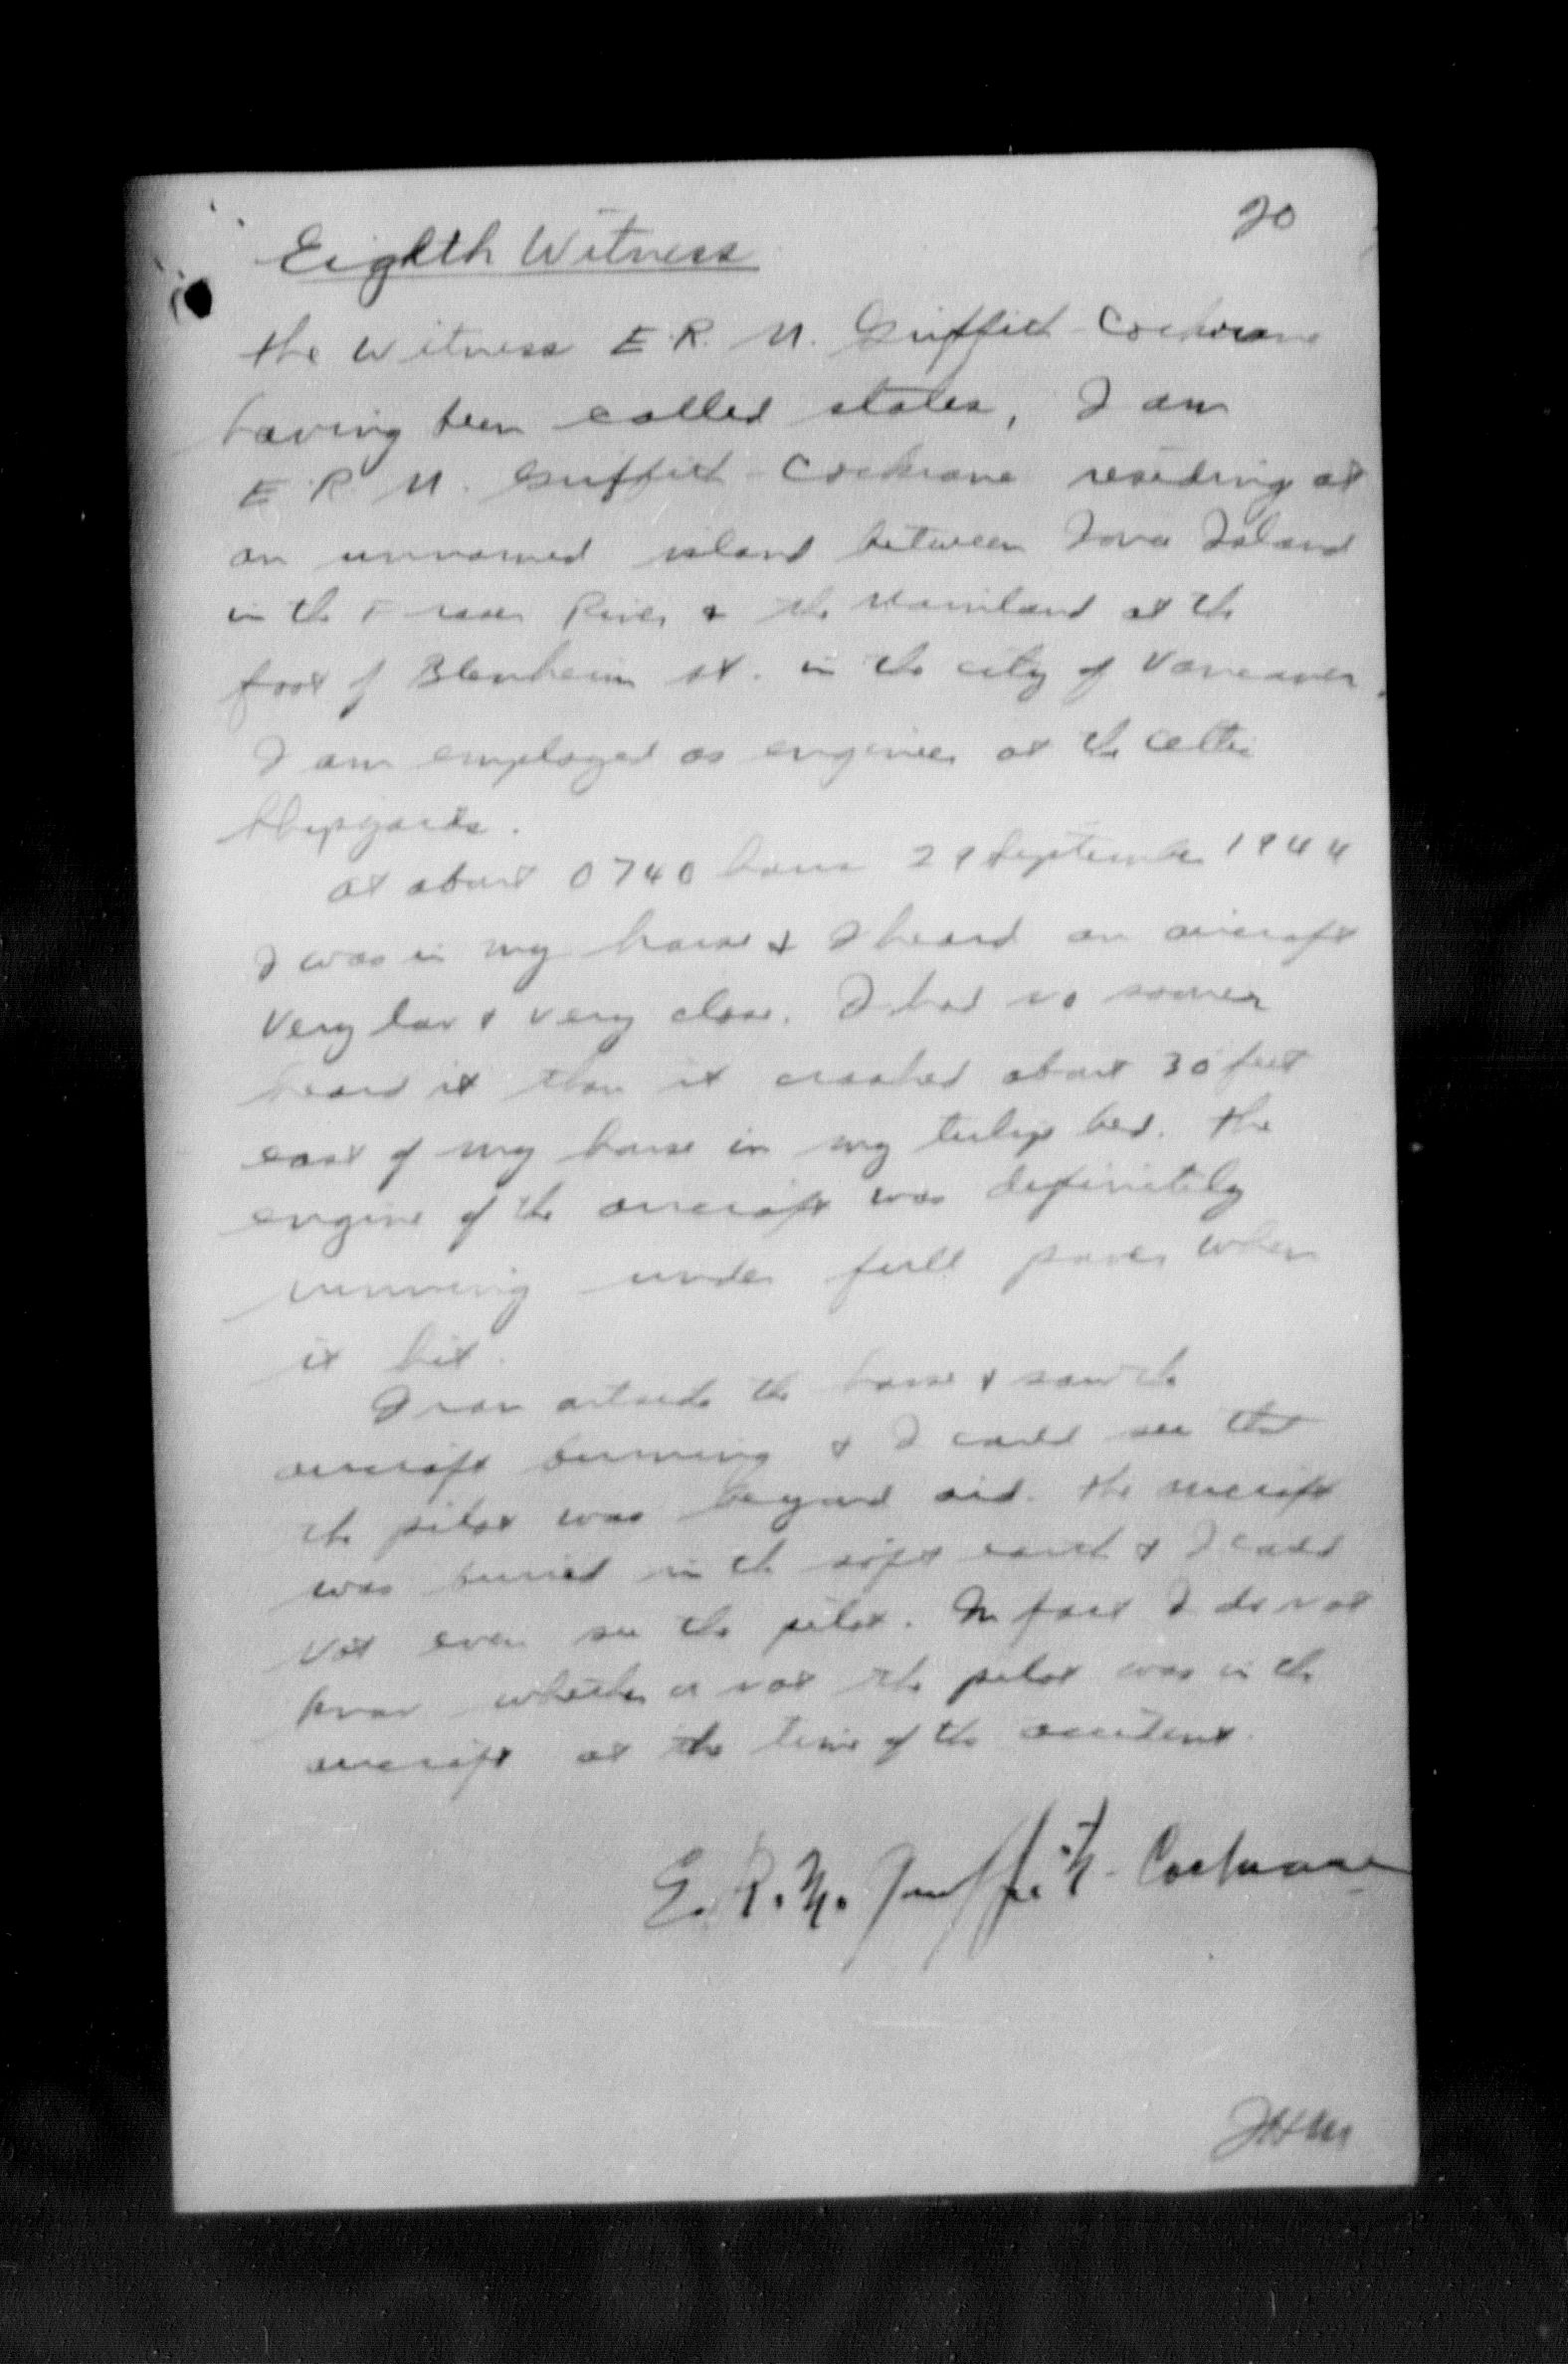 20
Eighth Witness
The Witness E.R. N. Griffith-Cochrane
having been called states, I am
E.R. N. Griffith-Cochrane residing at
an unnamed island between Iona Island
in the Fraser River & the Mainland at the
foot of Blenheim St. in the city of Vancouver.
I am employed as engineer at the Celtic
Shipyards.
At about 0740 hours 29 September 1944
I was in my house & I heard an aircraft
very low & very close. I had no sooner
heard it than it crashed about 30 feet
east of my house in my tulip bed. The
engine of the aircraft was definitely
running under full power when
it hit.
I ran outside the house & saw the
aircraft burning & I could see that
the pilot was beyond aid. The aircraft
was buried in the soft earth & I could
not even see the pilot. In fact I do not
know whether or not the pilot was in the
aircraft at the time of the accident.
E. R. N. Griffith-Cochrane